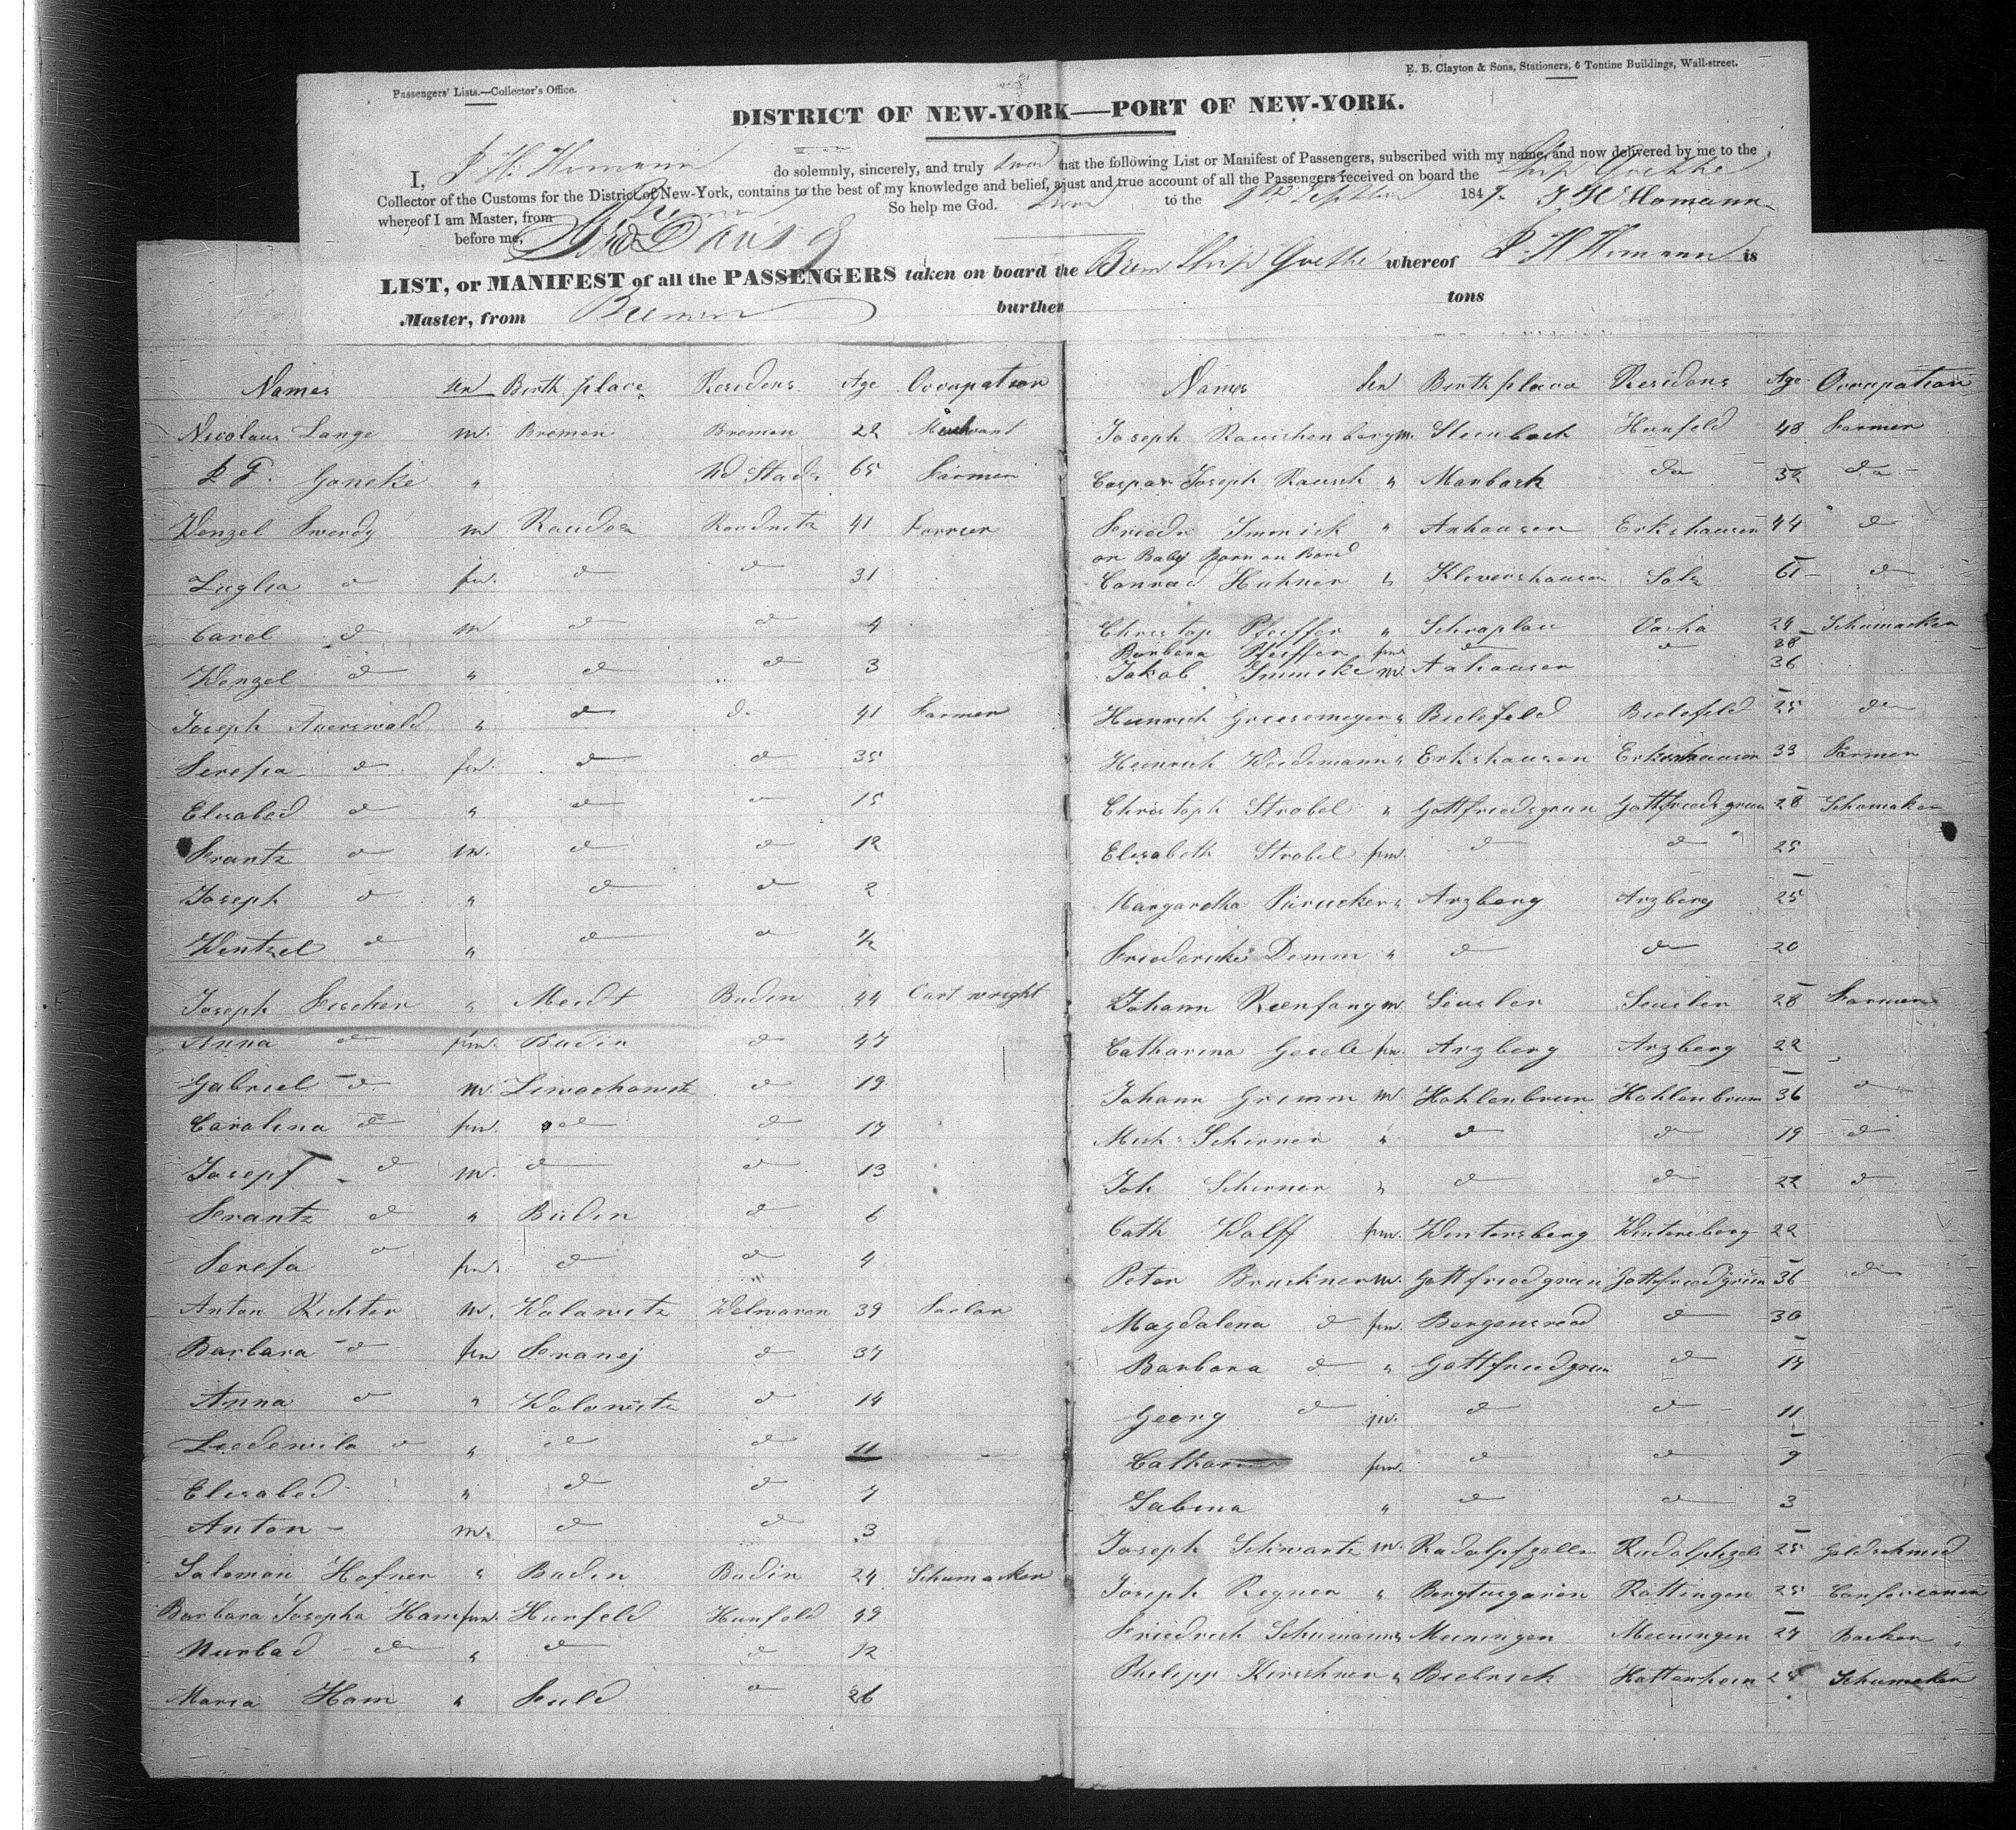 Passengers' Lists.—Collector's Office.
E. B. Clayton & Sons, Stationers, 6 Tontine Buildings, Wall-street.
DISTRICT OF NEW-YORK—PORT OF NEW-YORK.
I, J H Homann do solemnly, sincerely, and truly swear that the following List or Manifest of Passengers, subscribed with my name, and now delivered by me to the
Collector of the Customs for the District of New-York, contains to the best of my knowledge and belief, a just and true account of all the Passengers received on board the Ship Goethe
whereof I am Master, from Bremen So help me God. to the 184 J H Homann
before me,
LIST, or MANIFEST of all the PASSENGERS taken on board the Brem Ship Goethe whereof J H Homann is
Master, from Bremen burthen tons
Names Sex Birth place Residens Age Occupation
Nicolaus Lange m. Bremen Bremen 22
Goncke " 65 Farmer
Wenzel m Raudnitz 41 Farrier
d fm. d d 31
Carel d m d d 4
Wenzel d " d d 3
Joseph Auerswald " d d. 41 Farmer
Seresia d fm. d d 35
Elisabed d " d d 15
Frantz d m. d d 12
Joseph d " d d 2
Wentzel d " d d ½
Joseph Fischer " Budin 44 Cartwright
Anna d fm. Budin d 47
Gabriel d m. d 19
Carolina d fm. d d 17
Josepf d m. d d 13
Frantz d " Budin d 6
Seresa d fm. d d 4
Anton Richter m. Walawitz Welwaren 39
Barbara d fm d 37
Anna d " Walawitz d 14
Ludewila d " d d 11
Elisabed " d d 7
Anton m. d d 3
Salomon Hofner " Budin Budin 24 Schumacker
Barbara Josepha Ham fm. Hunfeld Hunfeld 49
d " d d 12
Maria Ham " Fuld d 26
Names Sex Birth place Residens Age Occupation
Joseph Rauschenberg m. Steinbach Hunfeld 48 Farmer
Caspar Joseph Rausch " Marbach do 32 do
Friedr Immick " Anhausen Erkshausen 44 d
on Baby born on Bord
Conrad Huhner " Klevershausen Solz 61 d
Christop Pfeiffer " Schraplau Vacha 24 Schumacker
Barbera Pfeiffer fm d d 28
Jakob Immicke m. Anhausen 36
Heinrich Griesemeyer " Bielefeld Bielefeld 25 do
Heinrich Wiedemann " Erkshausen Erkshausen 33 Farmer
Christoph Strobel " Gottfriedsgrun Gottfriedsgrun 28 Schumaker
Elisabeth Strobel fm. d d 25
Margaretha Pirucker " Arzberg Arzberg 25
Friedericke Demm " d d 20
Johann Reenfang m. 28 Farmer
Catharina Gesele fm. Arzberg Arzberg 22
Johann Grimm m Hohlenbrun Hohlenbrunn 36 d
Mich Scherner " d d 19 d
Joh Scherner " d d 22 d
Cath Wolff fm. Wintersberg Wintersberg 22
Peter Bruckner m. Gottfriedgrun Gottfriedgrün 36 d
Magdalena d fm. Bergensreed d 30
Barbara d " Gottfriedgrun d 14
Georg d m. d d 11
Catharina fm. d d 9
Sabina " d d 3
Joseph Schwartz m. Radolpfzelle Rudolphzele 25 Goldschmid
Joseph Regner " Rottingen 25
Friedrich Schumann " Meiningen Meiningen 27 Backer
Philipp Kirschner " Biebrich Hattenheim 25 Schumaker